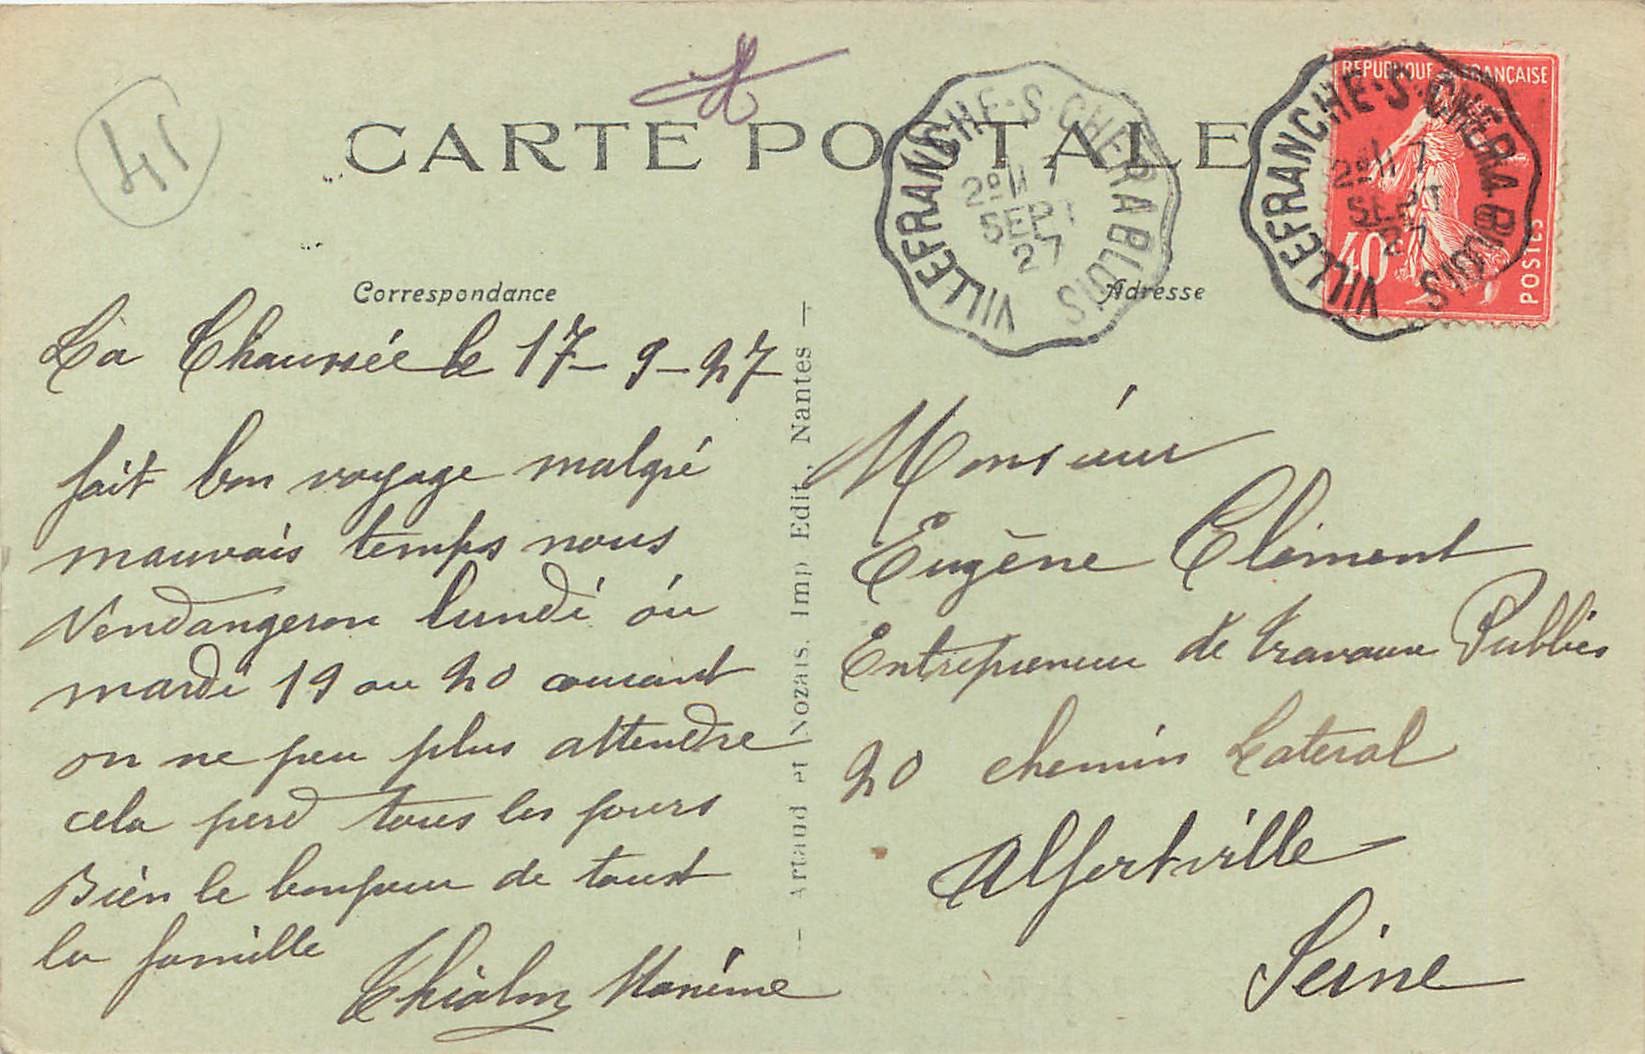 41
CARTE POSTALE
VILLEFRANCHE-S-CHER A BLOIS
2º 17
SEPT
27
VILLEFRANCHE-S-CHER A BLOIS
2º 17
SEPT
27
REPUBLIQUE FRANÇAISE
40c
POSTES
Correspondance
La Chaussée le 17-9-27
fait bon voyage malgré
mauvais temps nous
Vendangeron lundi ou
mardi 19 ou 20 courant
on ne peu plus attendre
cela perd tous les jours
Bien le bonjour de tout
la famille
Maxime
— Artaud et Nozais. Imp Edit. Nantes —
Adresse
Monsieur
Eugène Clément
Entrepreneur de travaux Publics
20 chemin Lateral
Alfortville
Seine